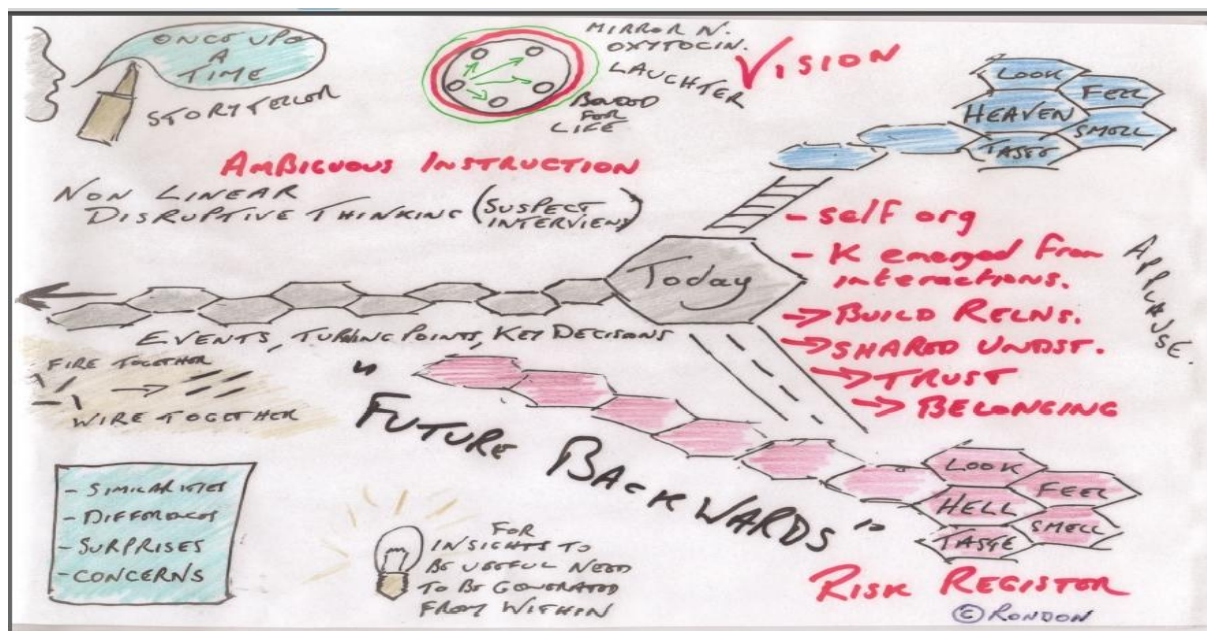 ONCE UPO
A
TIME
STORYTELLOR
MIRROR N.
OXYTOCIN.
LAUGHTER
BONDED
FOR
LIFE
VISION
LOOK
FEEL
HEAVEN
SMELL
TASTE
AMBIGUOUS INSTRUCTION
NON LINEAR
DISRUPTIVE THINKING (SUSPECT
INTERVIEW)
- self org
- K emerged from
interactions.
→ BUILD RELNS.
→ SHARED UNDST.
→ TRUST
→ BELONGING
APPLAUSE.
Today
EVENTS, TURNING POINTS, KEY DECISIONS
FIRE TOGETHER
WIRE TOGETHER
"FUTURE BACKWARDS"
- SIMILARITIES
- DIFFERENCES
- SURPRISES
- CONCERNS
FOR
INSIGHTS TO
BE USEFUL NEED
TO BE GENERATED
FROM WITHIN
LOOK
FEEL
HELL
SMELL
TASTE
RISK REGISTER
© RONDON